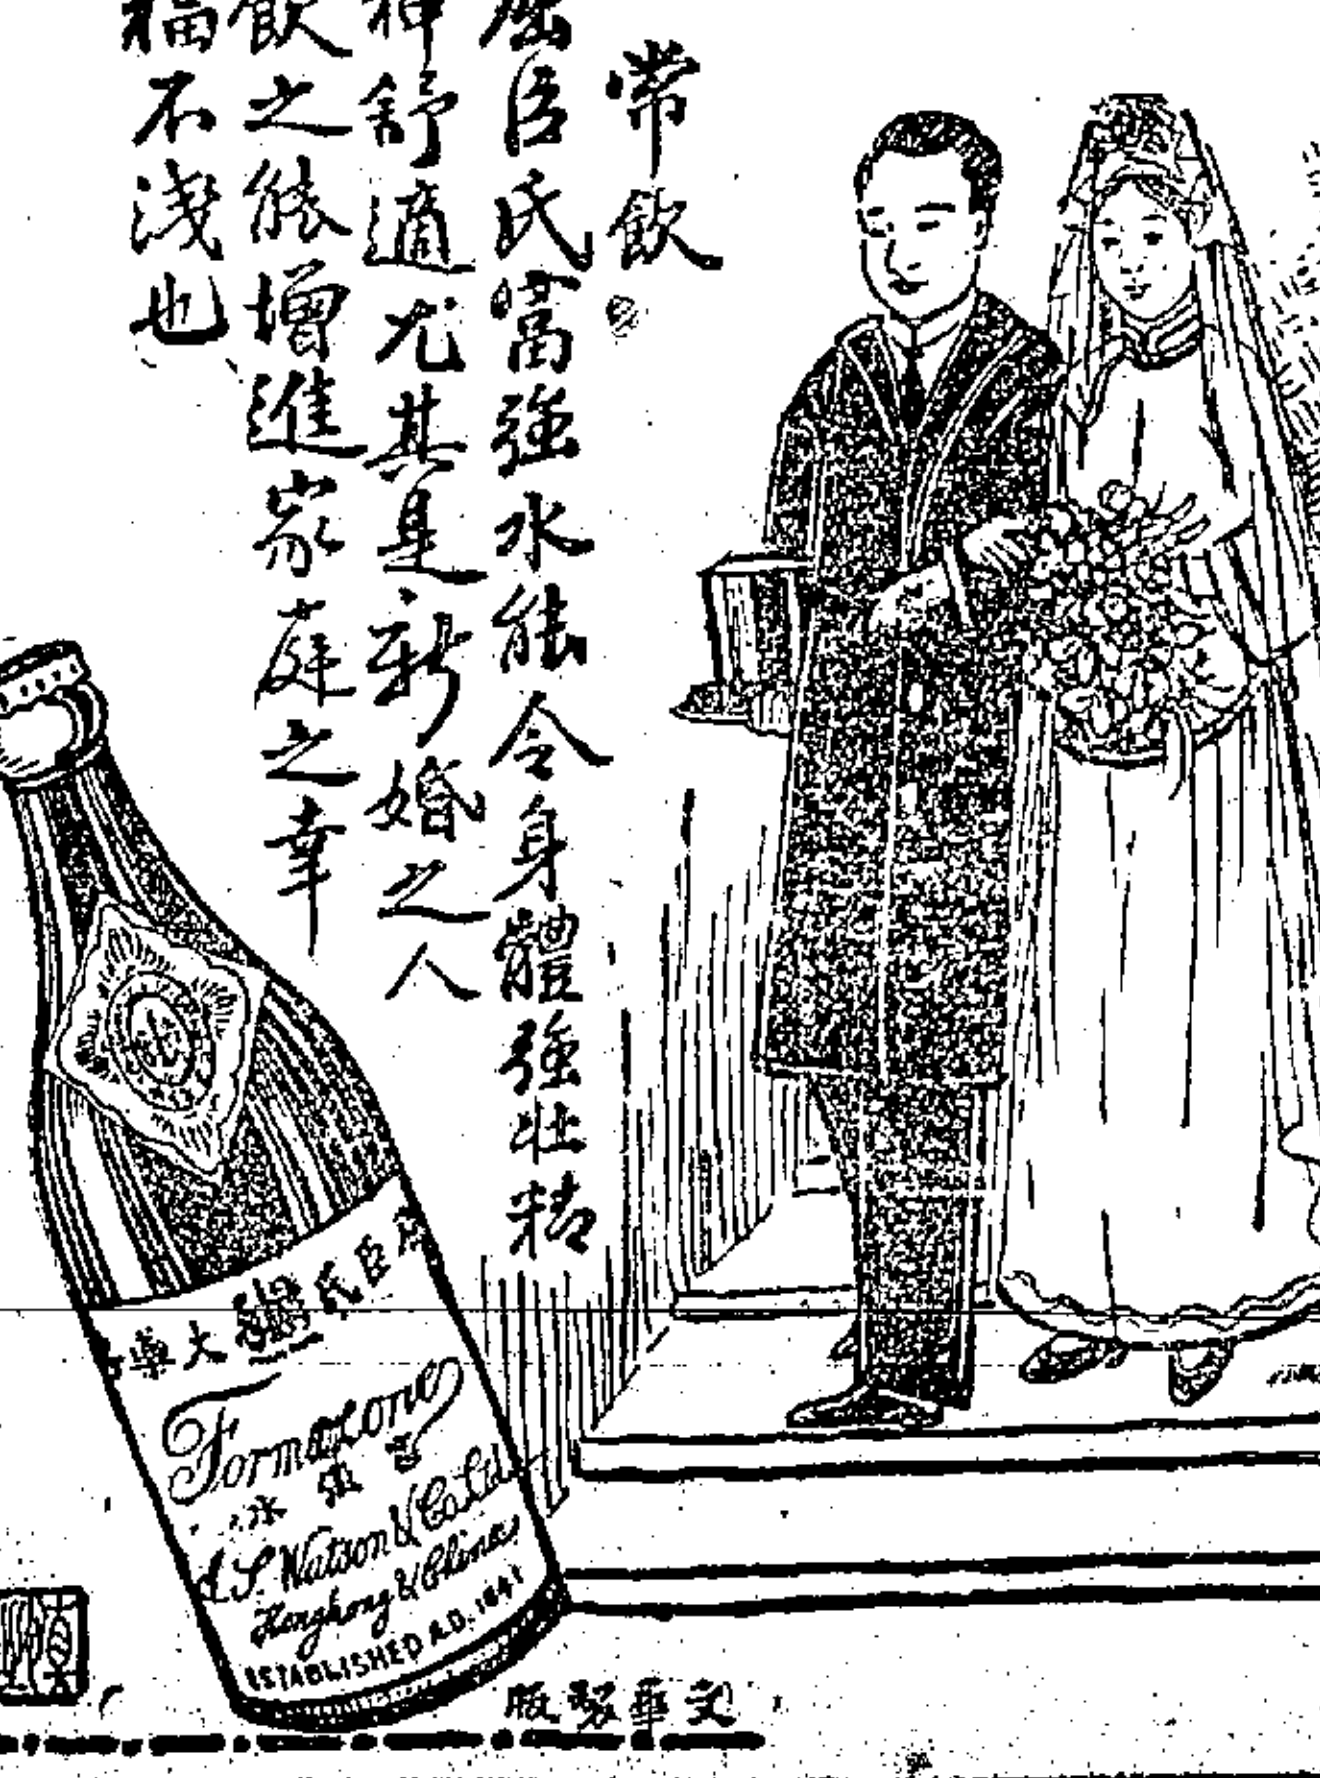 常飲
屈臣氏富強水能令身體強壯精
神舒適尤其是新婚之人
飲之能增進家庭之幸
福不淺也
屈臣氏 大藥
Formazone
富強水
A.S. Watson & Co. Ltd
Hongkong & China
ESTABLISHED A.D. 1841
文華製版